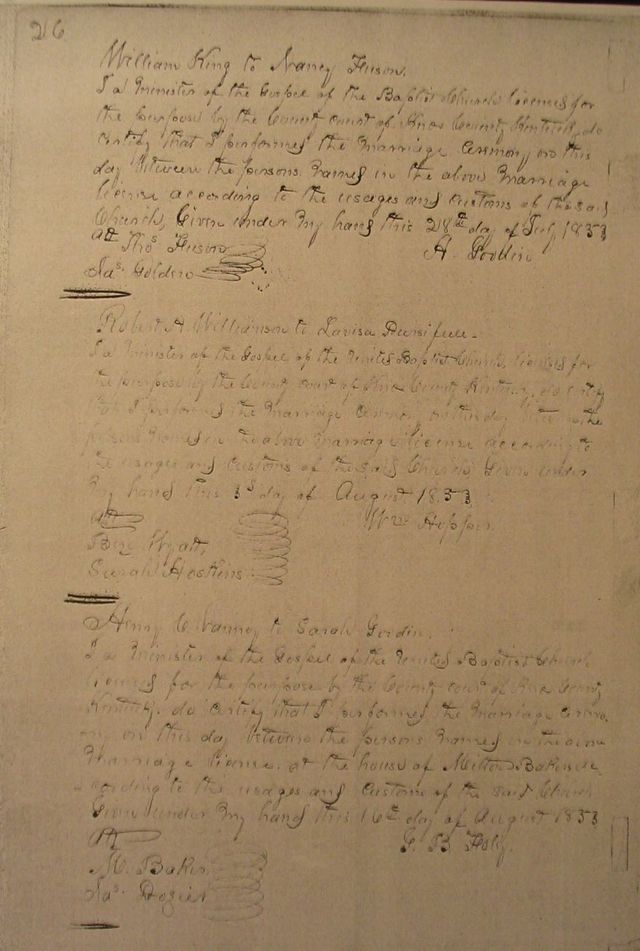 26
William King to Nancy Fuson.
I a Minister of the Gospel of the Baptist Church licensed for
the purpose by the County court of Knox County Kentucky do
certify that I performed the marriage ceremony on this
day between the persons named in the above marriage
license according to the usages and customs of the said
Church, Given under my hand this 28th day of July 1853
Att Thos Fuson A. Goodin
Jas. Golden
Robert A. Williamson to Lavisa Pursifull.
I a Minister of the Gospel of the United Baptist Church, licensed for
the purpose by the County court of Knox County Kentucky, do certify
that I performed the marriage ceremony on this day between the
persons named in the above marriage license according to
the usages and customs of the said Church Given under
my hand this 3d day of August 1853
Att Wm Hopper.
Wyatt,
Sarah Hoskins
Henry C. to Sarah Goodin.
I a Minister of the Gospel of the United Baptist Church
licensed for the purpose by the County court of Knox County
Kentucky. do certify that I performed the marriage ceremo
ny on this day between the persons named in the above
Marriage license. at the house of Milton Bakers ac
cording to the usages and customs of the said Church
Given under my hand this 16th day of August 1853
Att
M. Baker
Jas. Dozier